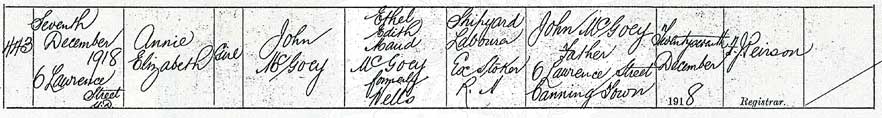 443
Seventh
December
1918
6 Lawrence
Street
Annie
Elizabeth
Girl
John
McGoey
Ethel
Edith
Maud
McGoey
formerly
Wells
Shipyard
Labourer
Ex Stoker
R.N
John McGoey
Father
6 Lawrence Street
Canning Town
Twentyseventh
December
1918
J. Peirson
Registrar.